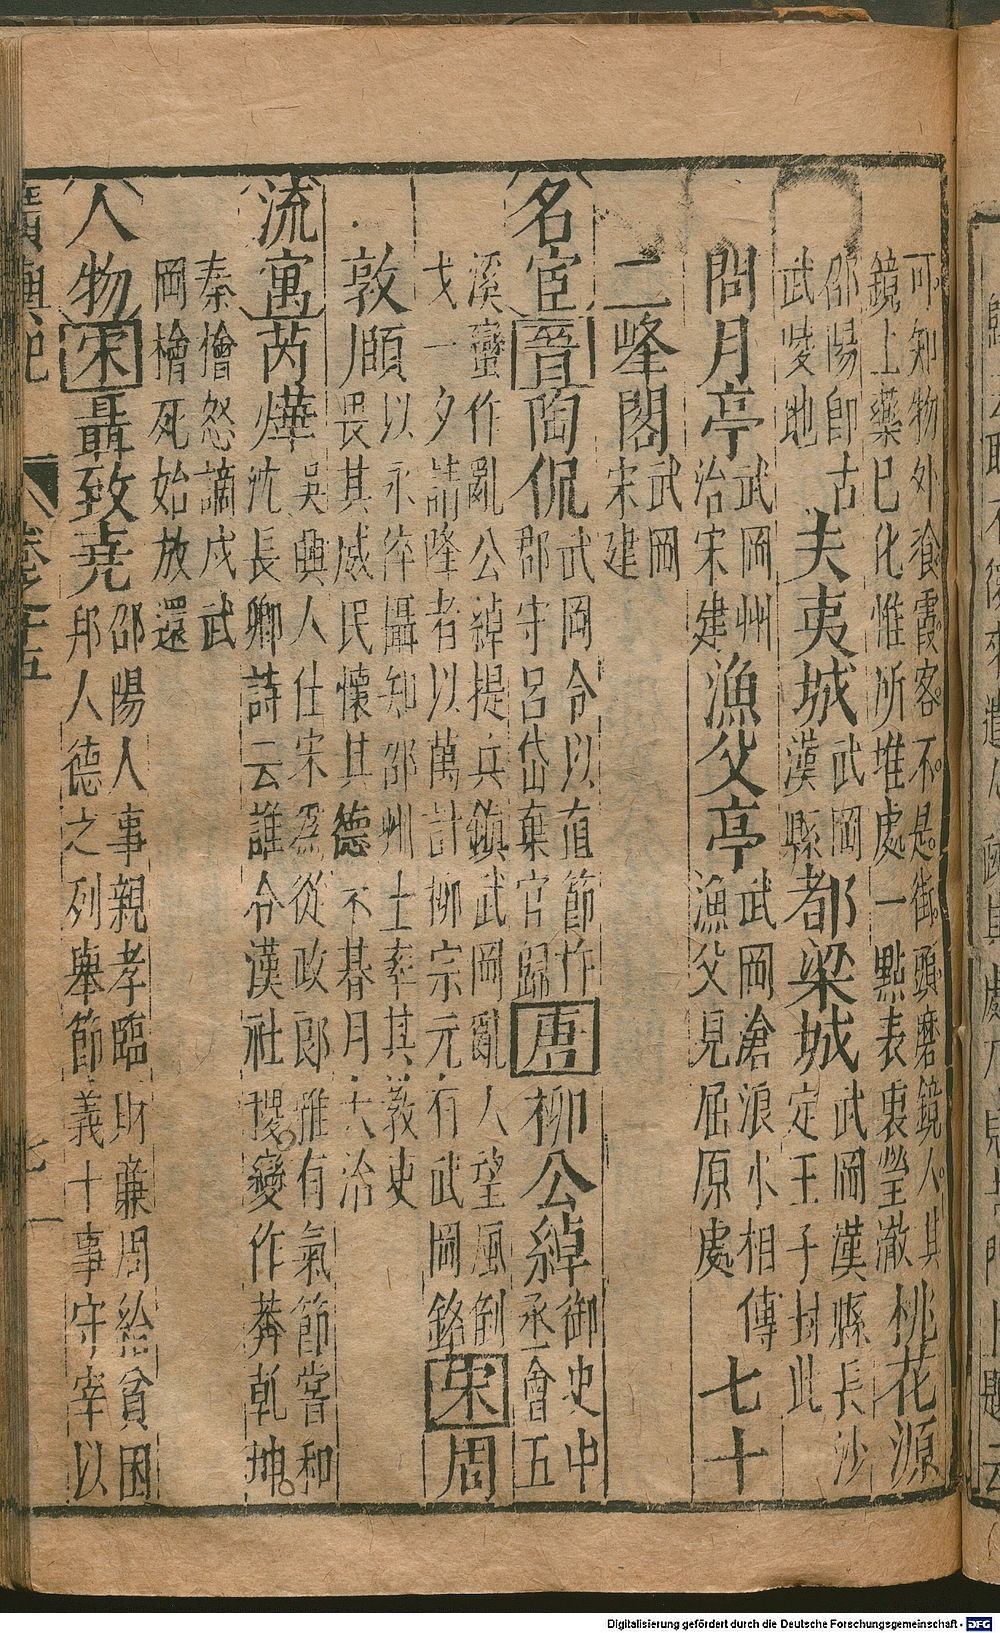 可知物外飡霞客不是街頭磨鏡人其
鏡上藥已化惟所堆處一點表裏瑩澈桃花源
邵陽卽古
武陵地夫夷城武岡
漢縣都梁城武岡漢縣長沙
定王子封此
問月亭武岡州
治宋建漁父亭武岡滄浪水相傳
漁父見屈原處七十
二峰閣武岡
宋建
名宦晉陶侃武岡令以直節忤
郡守呂岱棄官歸唐柳公綽御史中
丞會五
溪蠻作亂公綽提兵鎮武岡亂人望風倒
戈一夕請降者以萬計柳宗元有武岡銘宋周
敦頤以永倅攝知邵州士率其教吏
畏其威民懷其德不朞月大治
流寓芮燁吳興人仕宋爲從政郎雅有氣節嘗和
沈長卿詩云誰令漢社稷變作莽乾坤
秦檜怒謫戍武
岡檜死始放還
人物宋聶致堯邵陽人事親孝臨財廉周給貧困
邦人德之列舉節義十事守宰以
廣輿記
卷之十五
七
Digitalisierung gefördert durch die Deutsche Forschungsgemeinschaft - DFG